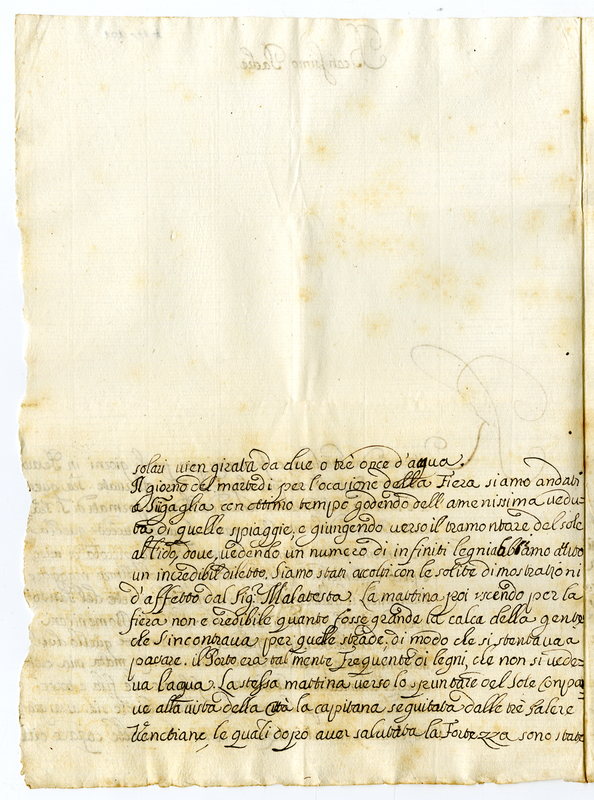 solari vien girata da due o trè once d'acqua.
Il giorno del martedi per l'occasione della Fiera siamo andati
a Sigaglia con ottimo tempo godendo dell'amenissima vedu-
ta di quelle spiaggie, e giungendo verso il tramontare del sole
al lido, dove, vedendo un numero di infiniti legni abbiamo avuto
un incredibil diletto. Siamo stati accolti con le solite dimostrazioni
d'affetto dal Sig. Malatesta. La mattina poi uscendo per la
fiera non è credibile quanto fosse grande la calca della gente
che s'incontrava per quelle strade, di modo che si stentava a
passare. il Porto era talmente frequente di legni, che non si vede-
va l'acqua. La stessa mattina verso lo spuntare del sole compar-
ve alla vista della Città la capitana seguitata dalle trè Galere
Venetiane, le quali dopo aver salutata la Fortezza sono state